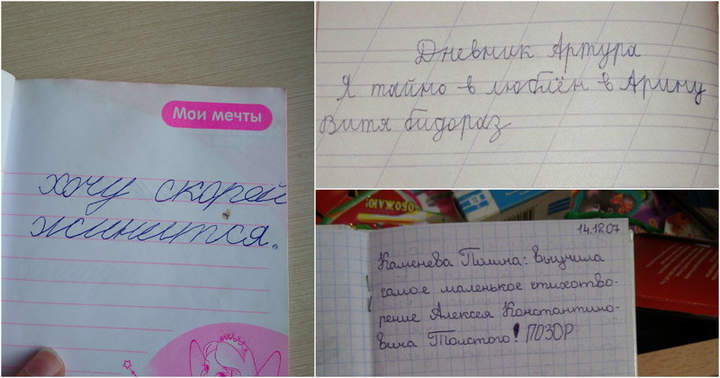 Мои мечты
хочу скорей
жинится.
Дневник Артура
Я тайно в люблён в Арину
Витя бидораз
ОБОЖАЮ!
14.12.07
Каменева Полина: Выучила
самое маленькое стихотво-
рение Алексея Константино-
вича Толстого! ПОЗОР